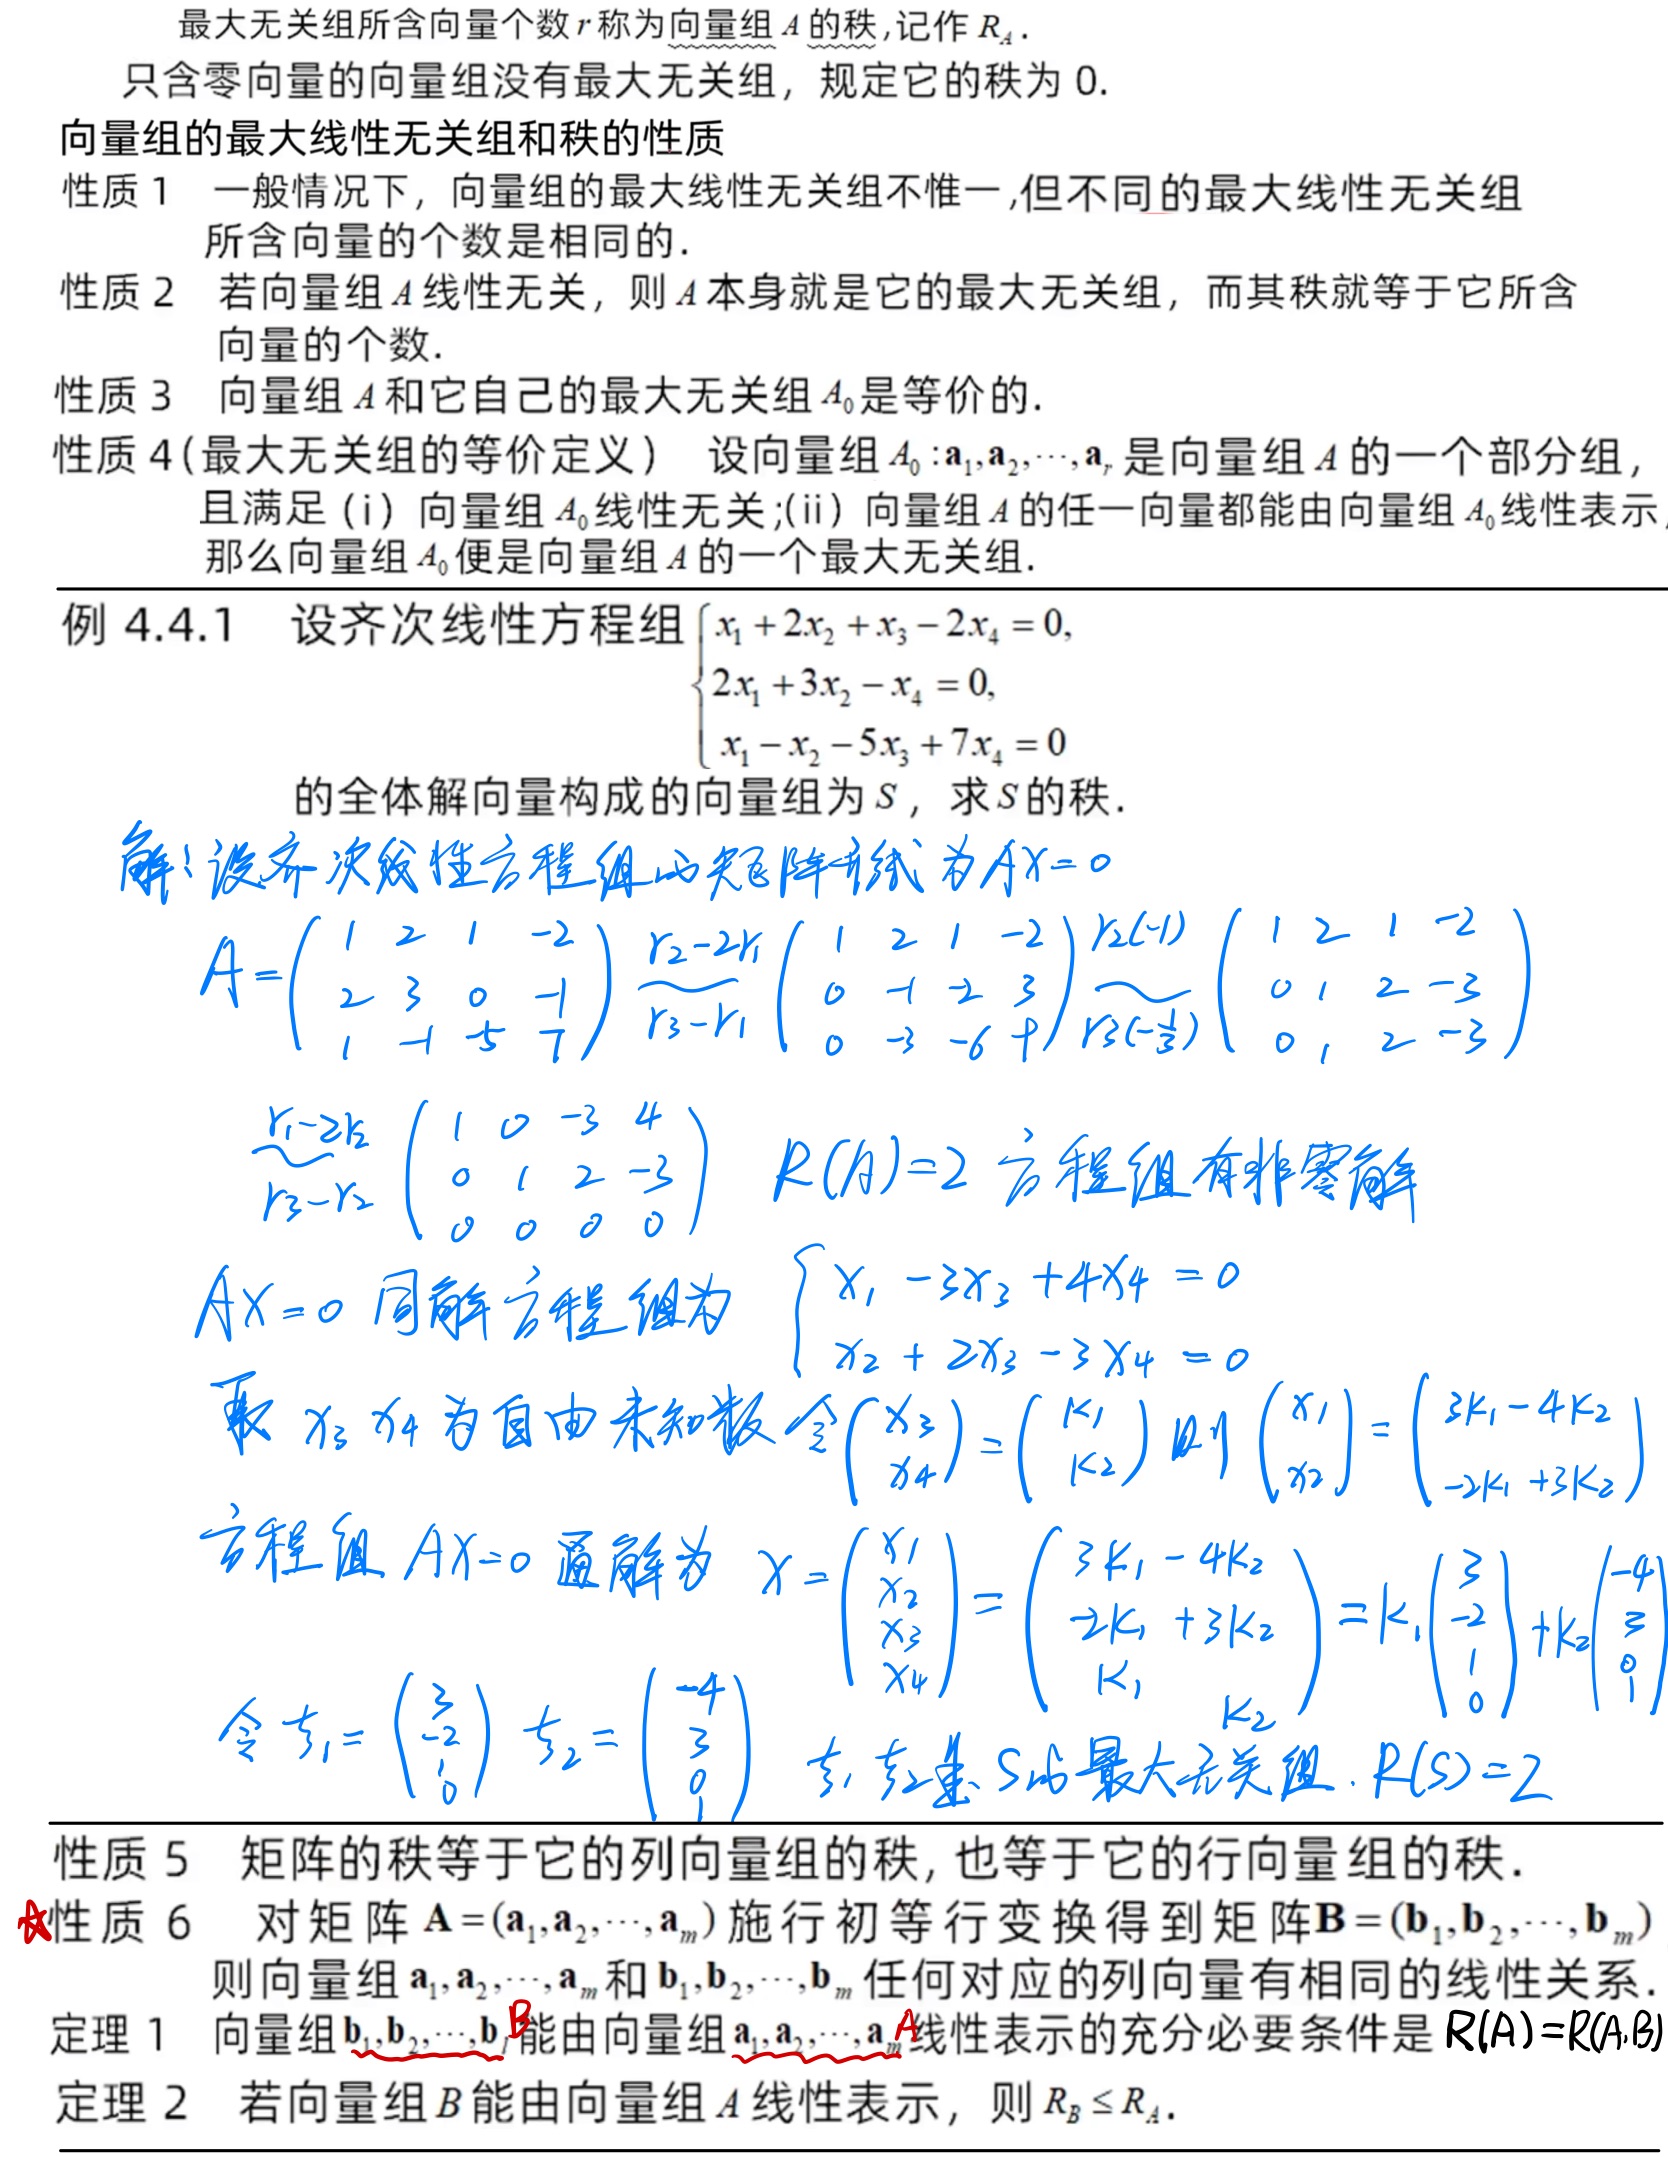 最大无关组所含向量个数 r 称为向量组 A 的秩,记作 R_A.
只含零向量的向量组没有最大无关组，规定它的秩为 0.
向量组的最大线性无关组和秩的性质
性质 1 一般情况下，向量组的最大线性无关组不惟一,但不同的最大线性无关组
所含向量的个数是相同的.
性质 2 若向量组 A 线性无关，则 A 本身就是它的最大无关组，而其秩就等于它所含
向量的个数.
性质 3 向量组 A 和它自己的最大无关组 A₀ 是等价的.
性质 4(最大无关组的等价定义) 设向量组 A₀ : a₁, a₂, ⋯, aᵣ 是向量组 A 的一个部分组，
且满足 (i) 向量组 A₀ 线性无关;(ii) 向量组 A 的任一向量都能由向量组 A₀ 线性表示,
那么向量组 A₀ 便是向量组 A 的一个最大无关组.
例 4.4.1 设齐次线性方程组 { x₁ + 2x₂ + x₃ − 2x₄ = 0,
2x₁ + 3x₂ − x₄ = 0,
x₁ − x₂ − 5x₃ + 7x₄ = 0
的全体解向量构成的向量组为 S，求 S 的秩.
解: 设齐次线性方程组的矩阵形式为 AX=0
A = ( 1 2 1 -2 ) r2-2r1 ( 1 2 1 -2 ) r2(-1) ( 1 2 1 -2 )
( 2 3 0 -1 ) ~ ( 0 -1 -2 3 ) ~ ( 0 1 2 -3 )
( 1 -1 -5 7 ) r3-r1 ( 0 -3 -6 9 ) r3(-1/3) ( 0 1 2 -3 )
r1-2r2 ( 1 0 -3 4 )
~ ( 0 1 2 -3 ) R(A)=2 方程组有非零解
r3-r2 ( 0 0 0 0 )
AX=0 同解方程组为 { x₁ -3x₃ +4x₄ = 0
x₂ + 2x₃ -3x₄ = 0
取 x₃ x₄ 为自由未知数 令 (x₃ x₄) = (k₁ k₂) 则 (x₁ x₂) = (3k₁-4k₂ -2k₁+3k₂)
方程组 AX=0 通解为 X = (x₁ x₂ x₃ x₄) = (3k₁-4k₂ -2k₁+3k₂ k₁ k₂) = k₁(3 -2 1 0) + k₂(-4 3 0 1)
令 ξ₁ = (3 -2 1 0) ξ₂ = (-4 3 0 1) ξ₁ ξ₂ 是 S的最大无关组. R(S)=2
性质 5 矩阵的秩等于它的列向量组的秩, 也等于它的行向量组的秩.
☆性质 6 对矩阵 A = (a₁, a₂, ⋯, aₘ) 施行初等行变换得到矩阵 B = (b₁, b₂, ⋯, bₘ)
则向量组 a₁, a₂, ⋯, aₘ 和 b₁, b₂, ⋯, bₘ 任何对应的列向量有相同的线性关系.
定理 1 向量组 b₁, b₂, ⋯, b B 能由向量组 a₁, a₂, ⋯, aₘ A 线性表示的充分必要条件是 R(A)=R(A,B)
定理 2 若向量组 B 能由向量组 A 线性表示，则 R_B ≤ R_A.